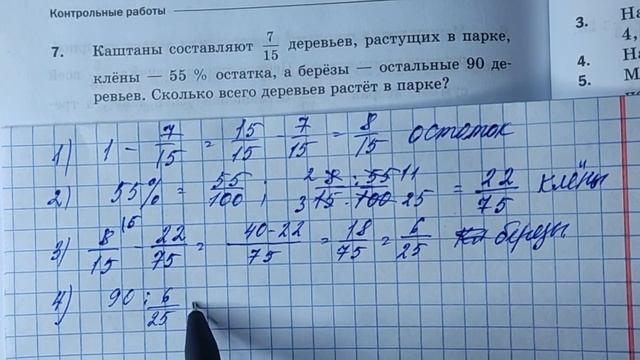 Контрольные работы
7. Каштаны составляют 7/15 деревьев, растущих в парке,
клёны — 55 % остатка, а берёзы — остальные 90 де-
ревьев. Сколько всего деревьев растёт в парке?
3. На
4,
4. На
5. М
1) 1 - 7/15 = 15/15 - 7/15 = 8/15 остаток
2) 55% = 55/100 ; 2 8 · 55 11 / 3 15 · 100 25 = 22/75 клёны
3) 8/15 (5 - 22/75 = 40-22/75 = 18/75 = 6/25 березы
4) 90 : 6/25